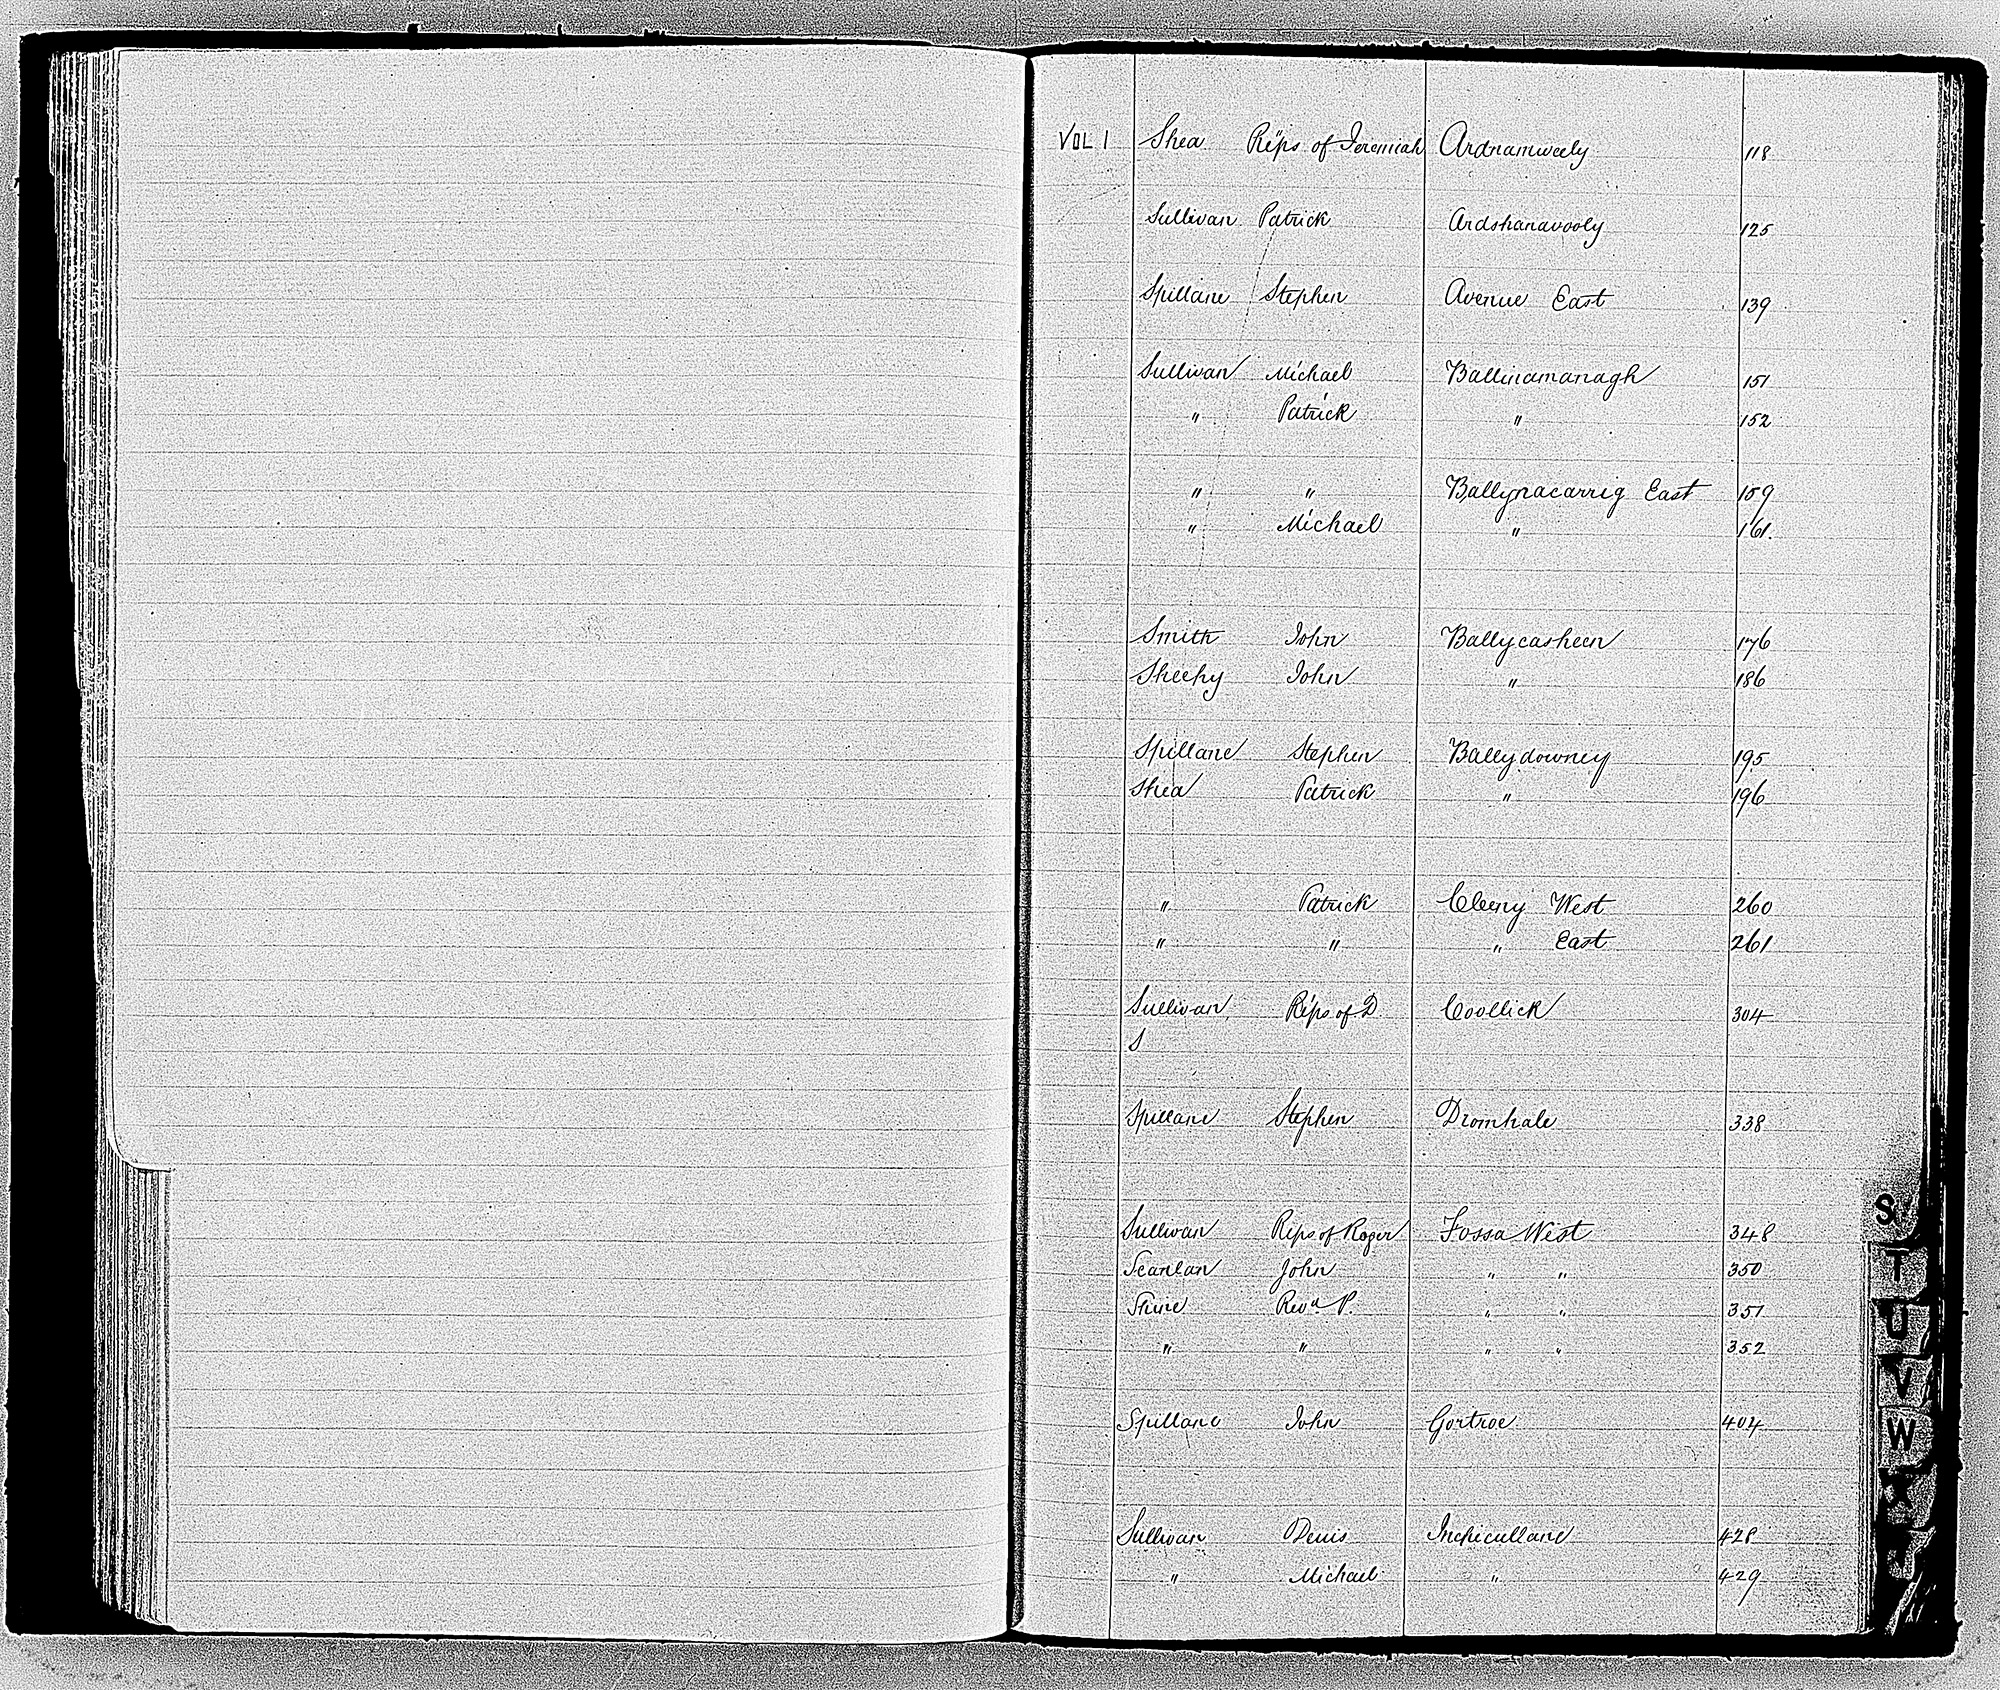 VOL 1 Shea Reps of Jeremiah Ardnamweely 118
Sullivan Patrick Ardshanavooly 125
Spillane Stephen Avenue East 139
Sullivan Michael Ballinamanagh 151
" Patrick " 152
" " Ballynacarrig East 159
" Michael " 161.
Smith John Ballycasheen 176
Sheehy John " 186
Spillane Stephen Ballydowney 195
Shea Patrick " 196
" Patrick Cleeny West 260
" " " East 261
Sullivan Reps of D Coollick 304
S
Spillane Stephen Dromhale 338
Sullivan Reps of Roger Fossa West 348
Scanlan John " " 350
Shine Revd P. " " 351
" " " " 352
Spillane John Gortroe 404
Sullivan Denis Inchicullane 428
" Michael " 429
S
T
U
V
W